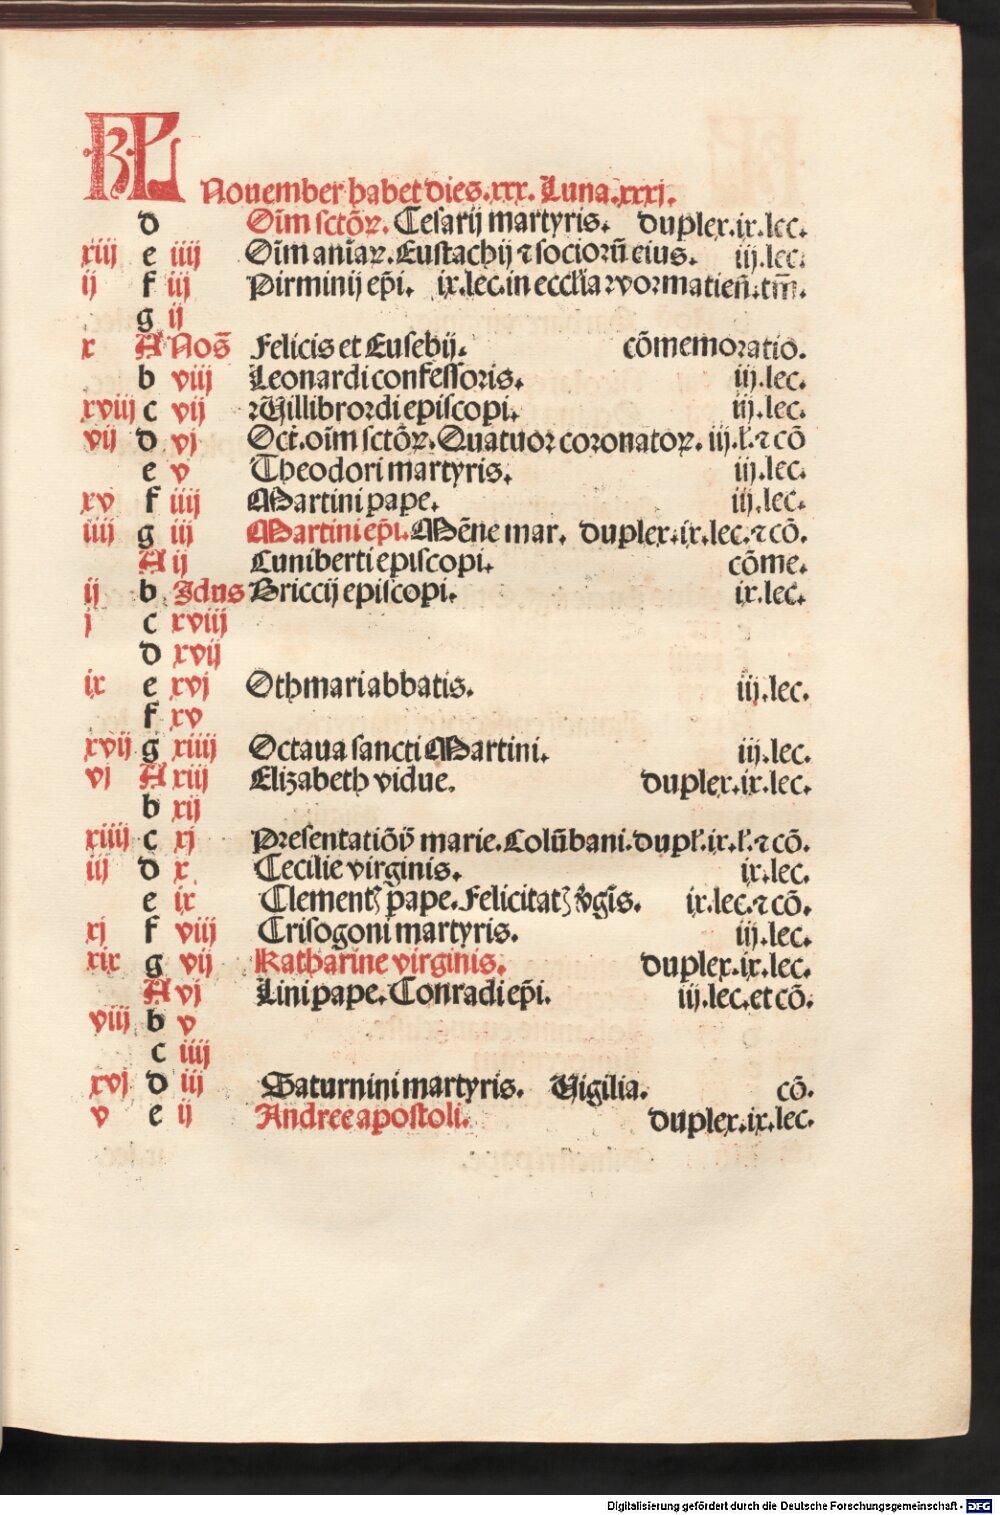 KL Nouember habet dies.xxx. Luna.xxxj.
d Oīm sctōꝝ. Cesarij martyris. duplex.ix.lec.
xiij e iiij Oīm aniaꝝ. Eustachij ⁊ sociorū eius. iij.lec.
ij f iij Pirminij ep̄i. ix.lec.in eccl̄ia wormatien̄.tm̄.
g ij
x A Nos̄ Felicis et Eusebij. cōmemoratio.
b viij Leonardi confessoris. iij.lec.
xviij c vij Willibrordi episcopi. iij.lec.
vij d vj Oct̄. oīm sctōꝝ. Quatuor coronatoꝝ. iij.l̄.⁊ cō
e v Theodori martyris. iij.lec.
xv f iiij Martini pape. iij.lec.
iiij g iij Martini ep̄i. Mēne mar. duplex.ix.lec.⁊ cō.
A ij Cuniberti episcopi. cōme.
ij b Idus Briccij episcopi. ix.lec.
j c xviij
d xvij
ix e xvj Othmari abbatis. iij.lec.
f xv
xvij g xiiij Octaua sancti Martini. iij.lec.
vj A xiij Elizabeth vidue. duplex.ix.lec.
b xij
xiiij c xj Presentatiōīs̄ marie. Colūbani.dupl̄.ix.l̄.⁊ cō.
iij d x Cecilie virginis. ix.lec.
e ix Clementꝫ pape. Felicitatꝫ v̄gīs. ix.lec.⁊ cō.
xj f viij Crisogoni martyris. iij.lec.
xix g vij Katharine virginis. duplex.ix.lec.
A vj Lini pape. Conradi ep̄i. iij.lec.et cō.
viij b v
c iiij
xvj d iij Saturnini martyris. Vigilia. cō.
v e ij Andree apostoli. duplex.ix.lec.
Digitalisierung gefördert durch die Deutsche Forschungsgemeinschaft - DFG